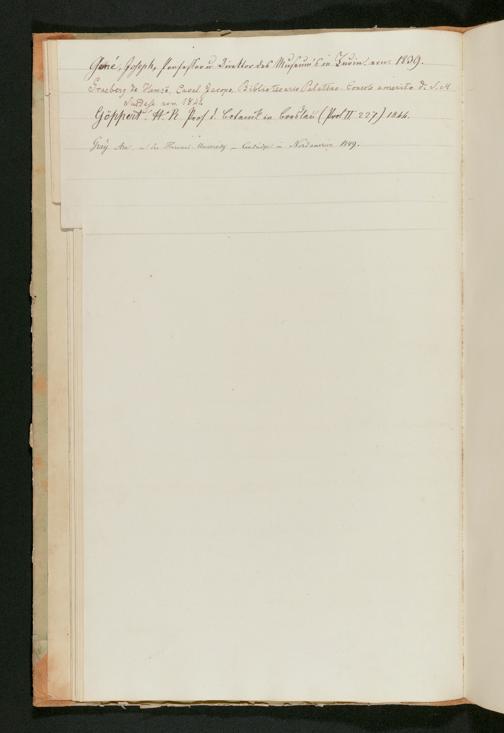 Gené, Joseph, Professor u. Direktor des Museum's in Turin. erw. 1839.
Graeberg de Hemsö, Caval. Jacopo Bibliotecario Palatino Console
Göppert, H. R. Prof. d. Botanik in Breslau (Prot. II 227) 1844.
Gray Asa an der Harvard University Cambridge in Nordamerica 1849.